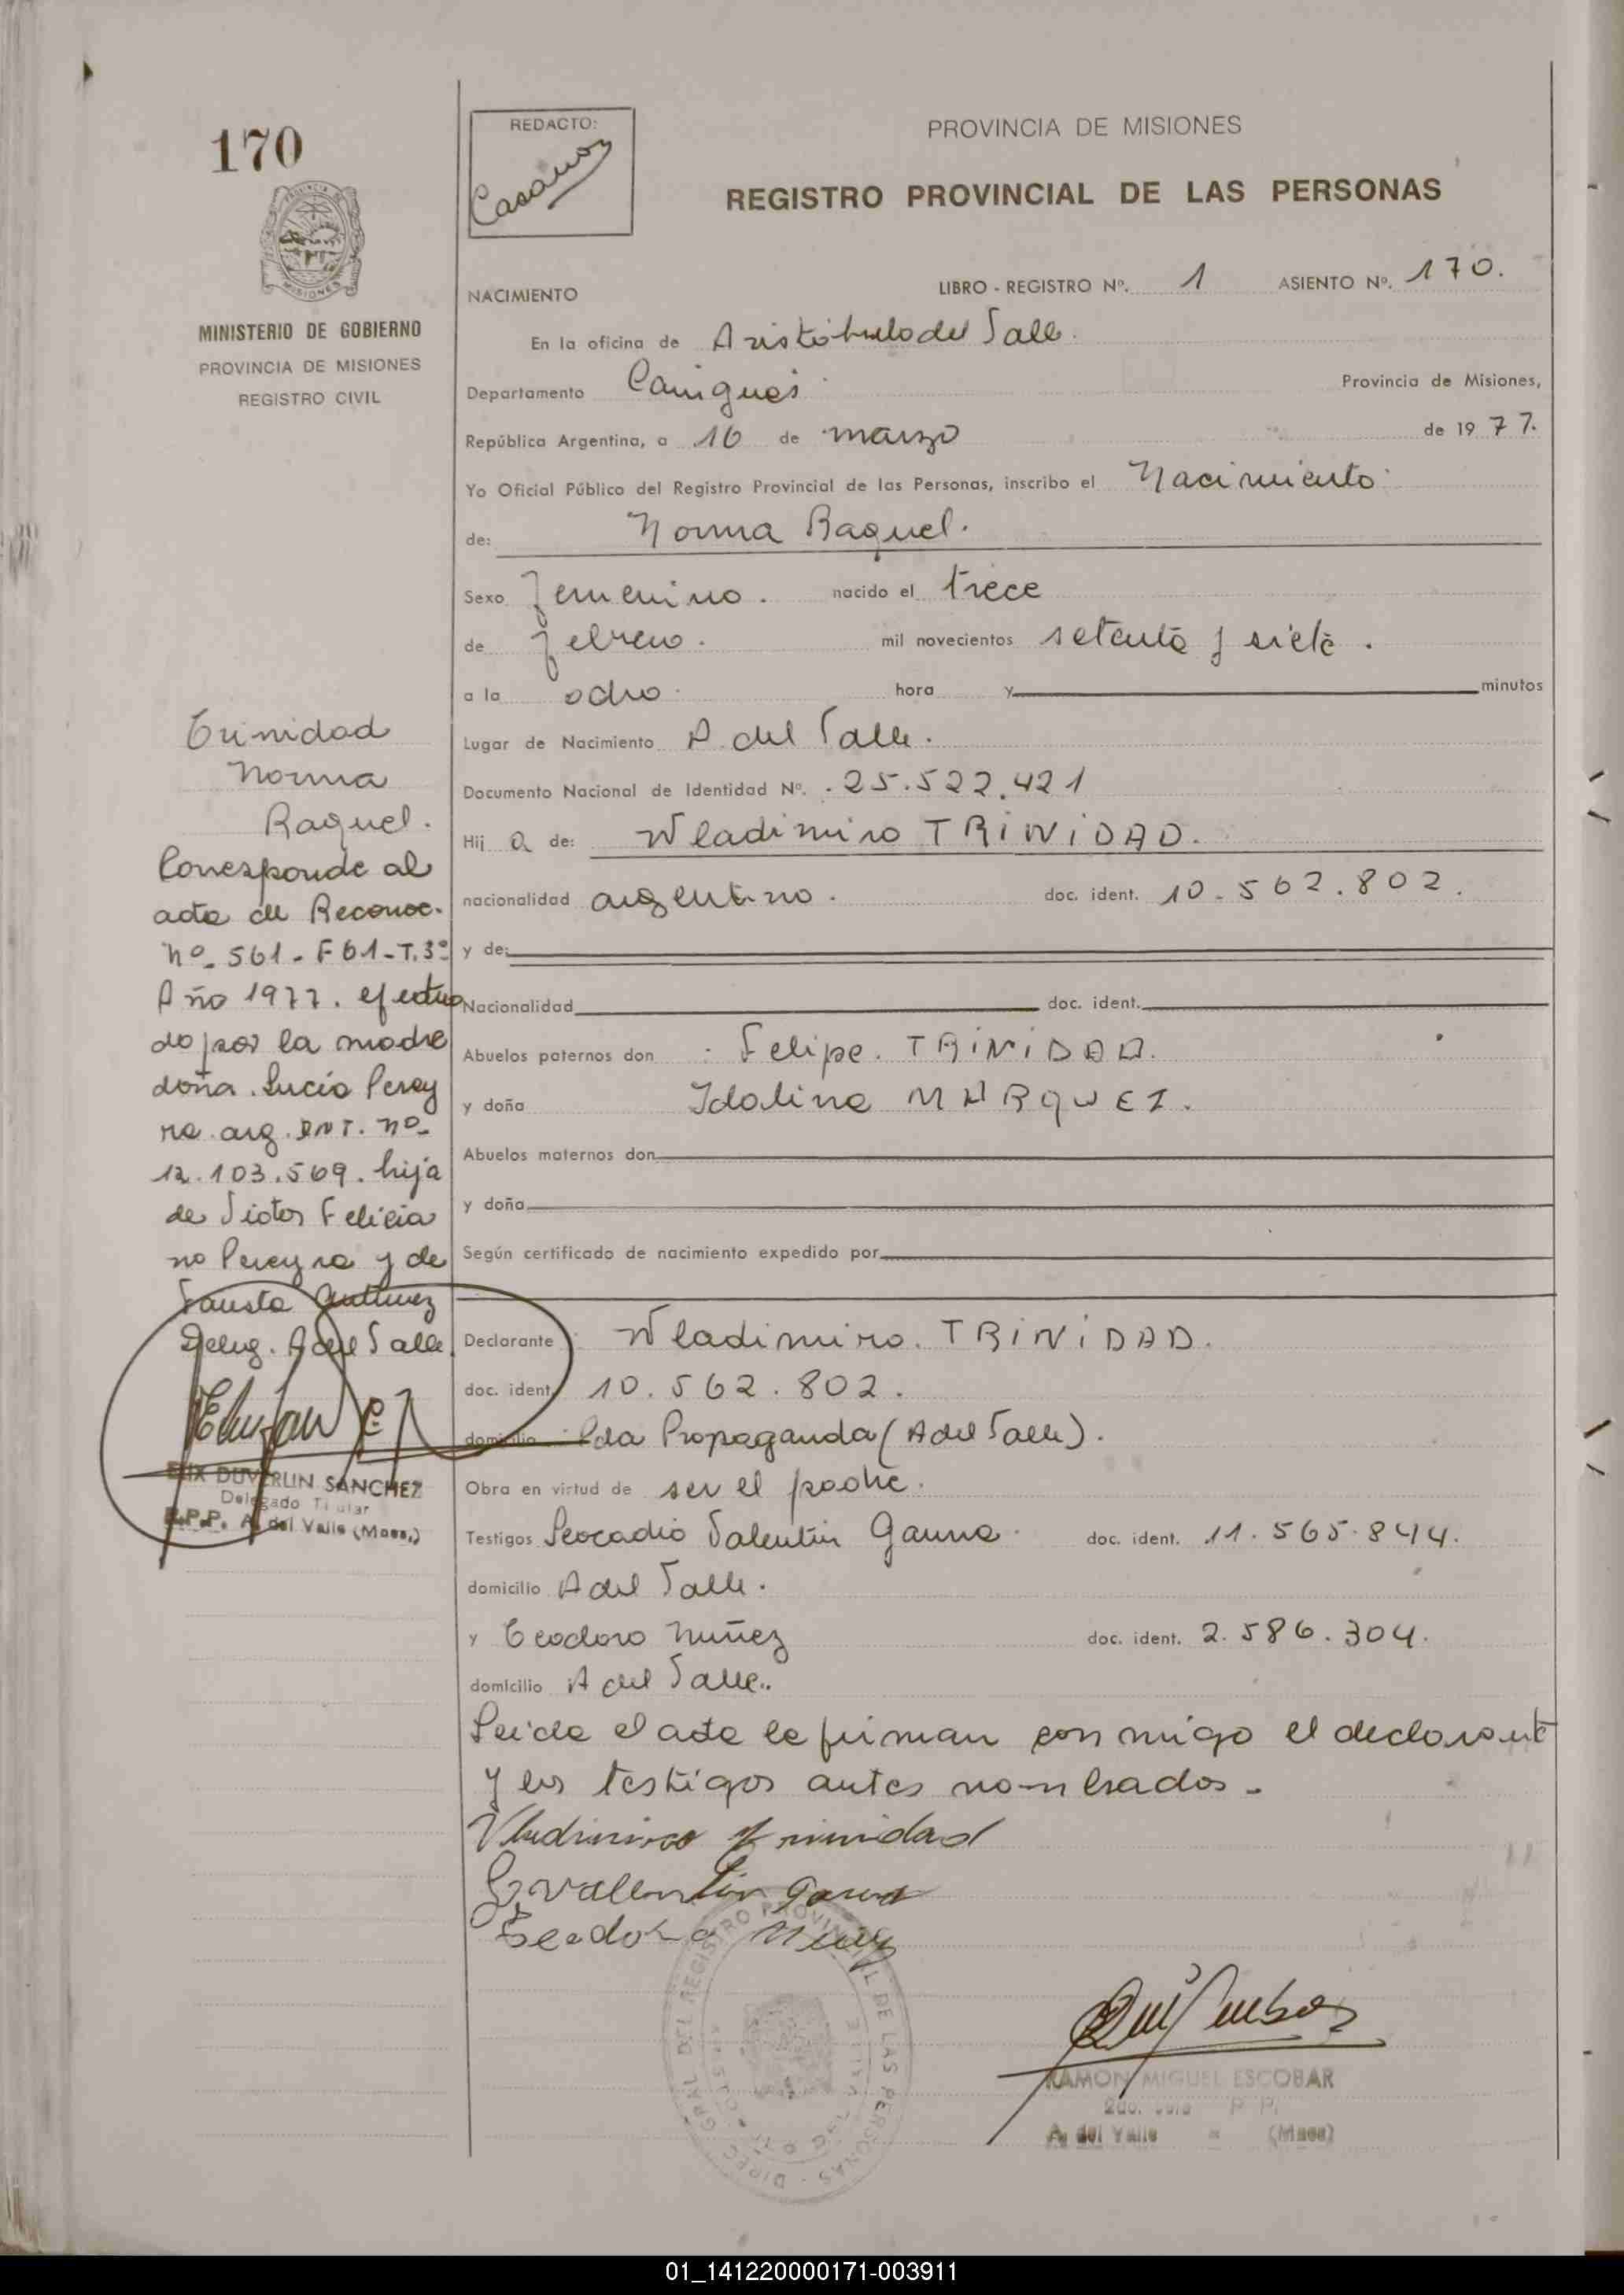 170
REDACTO:
Casanoz
PROVINCIA DE MISIONES
REGISTRO PROVINCIAL DE LAS PERSONAS
MINISTERIO DE GOBIERNO
PROVINCIA DE MISIONES
REGISTRO CIVIL
NACIMIENTO LIBRO - REGISTRO Nº. 1 ASIENTO Nº. 170.
En la oficina de Aristóbulo del Valle.
Departamento Cainguás Provincia de Misiones,
República Argentina, a 16 de marzo de 1977.
Yo Oficial Público del Registro Provincial de las Personas, inscribo el Nacimiento
de: Norma Raquel.
Sexo Femenino. nacido el trece
de febrero. mil novecientos setenta y siete.
a la ocho hora y minutos
Lugar de Nacimiento A. del Valle.
Documento Nacional de Identidad Nº. 25.522.421
Hij a de: Wladimiro TRINIDAD.
nacionalidad argentino. doc. ident. 10.562.802.
y de:
Nacionalidad doc. ident.
Abuelos paternos don Felipe. TRINIDAD.
y doña Idalina MARQUEZ.
Abuelos maternos don
y doña
Según certificado de nacimiento expedido por
Declarante Wladimiro. TRINIDAD.
doc. ident. 10.562.802.
domicilio Pda Propaganda (A del Valle).
Obra en virtud de ser el padre.
Testigos Leocadio Valentin Gauna doc. ident. 11.565.844.
domicilio A del Valle.
y Teodoro Nuñez doc. ident. 2.586.304.
domicilio A del Valle.
Leida el acta la firman con migo el declarante
y los testigos antes nombrados.
Vladimiro Trinidad
L Valentin Gauna
Teodoro Nuñez
Trinidad
Norma
Raquel.
Corresponde al
acta de Reconoc.
Nº. 561 - F 61 - T. 3º
Año 1977. efectua
do por la madre
doña Lucia Perey
ra. arg. DNI. Nº
12.103.569. hija
de Victor Felicia
no Pereyra y de
Fausta
Deleg. A del Valle
ELIX DUVERLIN SANCHEZ
Delegado Titular
R.P.P. A. del Valle (Mnes.)
DIREC. GRAL DEL REGISTRO PROVINCIAL DE LAS PERSONAS
RAMON MIGUEL ESCOBAR
2do. Jefe R. P. P.
A. del Valle - (Mnes)
01_141220000171-003911